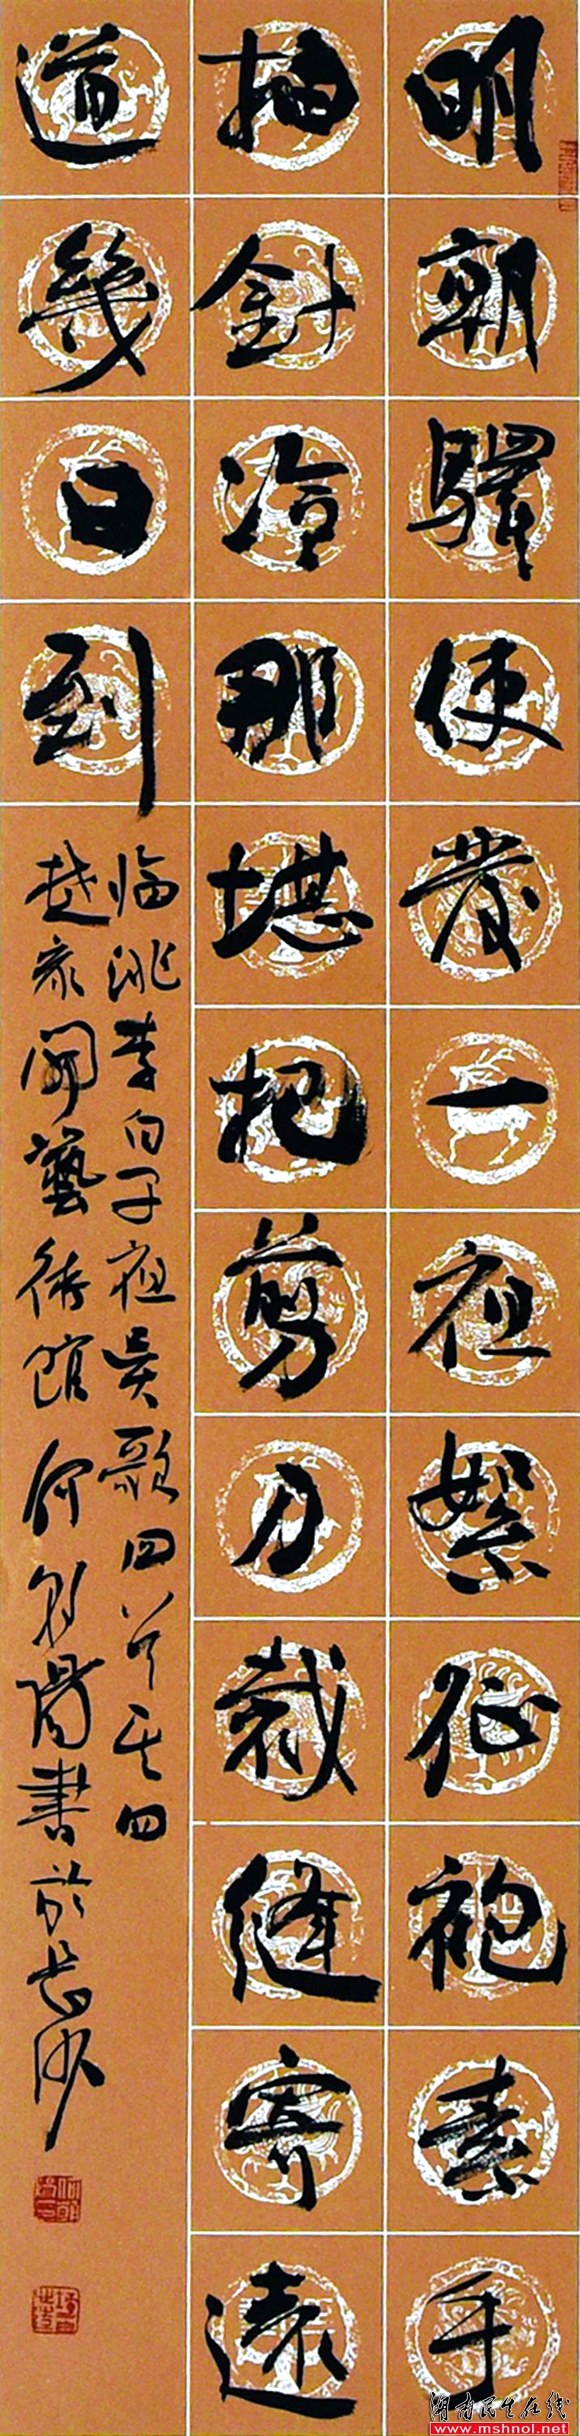 明朝驛使發一夜絮征袍素手
抽針冷那堪把剪刀裁縫寄遠
道幾日到
臨洮李白子夜吳歌四首其四
藝術館何陽書於長沙
湖南民生在线
www.mshnol.net